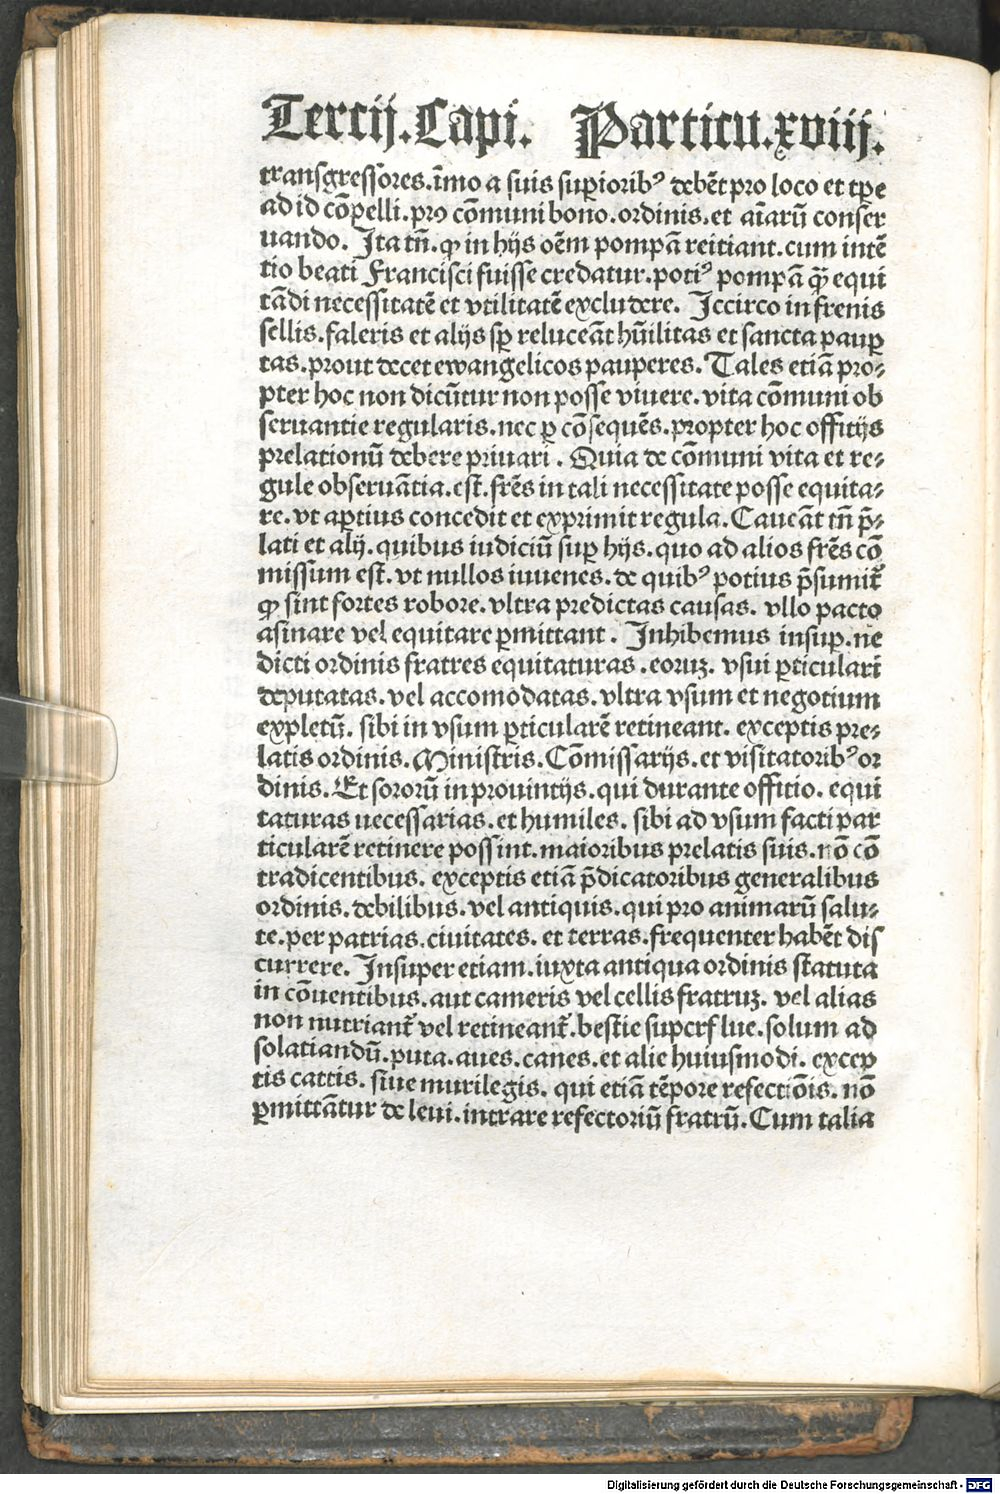 Tercij. Capi. Particu. xviij.
transgressores. īmo a suis suꝑioribꝰ debēt pro loco et tꝑe
ad id cōpelli. pro cōmuni bono. ordinis. et aīarū conser
uando. Ita tñ. ꝙ in hijs oēm pompā reitiant. cum intē
tio beati Francisci fuisse credatur. potiꝰ pompā q̄ꝫ equi
tādi necessitatē et vtilitatē excludere. Iccirco in frenis
sellis. faleris et alijs sꝑ reluceāt hūilitas et sancta pauꝑ
tas. prout decet ewangelicos pauperes. Tales etiā pro-
pter hoc non dicūtur non posse viuere. vita cōmuni ob
seruantie regularis. nec ꝑ cōsequēs. propter hoc offitijs
prelationū debere priuari. Quia de cōmuni vita et re-
gule obseruātia. est. frēs in tali necessitate posse equita-
re. vt aꝑtius concedit et exprimit regula. Caueāt tñ p̄-
lati et alij. quibus iudiciū suꝑ hijs. quo ad alios frēs cō
missum est. vt nullos iuuenes. de quibꝰ potius p̄sumit᷑
ꝙ sint fortes robore. vltra predictas causas. vllo pacto
asinare vel equitare ꝑmittant. Inhibemus insuꝑ. ne
dicti ordinis fratres equitaturas. eoruꝫ. vsui ꝑticulari
deputatas. vel accomodatas. vltra vsum et negotium
expletū. sibi in vsum ꝑticularē retineant. exceptis pre-
latis ordinis. Ministris. Cōmissarijs. et visitatoribꝰ or
dinis. Et sororū in prouintijs. qui durante offitio. equi
taturas necessarias. et humiles. sibi ad vsum facti par
ticularē retinere possint. maioribus prelatis suis. nō cō
tradicentibus. exceptis etiā p̄dicatoribus generalibus
ordinis. debilibus. vel antiquis. qui pro animarū salu-
te. per patrias. ciuitates. et terras. frequenter habēt dis
currere. Insuper etiam. iuxta antiqua ordinis statuta
in cōuentibus. aut cameris vel cellis fratruꝫ. vel alias
non nutriant᷑ vel retineant᷑. bestie superflue. solum ad
solatiandū. puta. aues. canes. et alie huiusmodi. excep
tis cattis. siue murilegis. qui etiā tēpore refectiōis. nō
ꝑmittātur de leui. intrare refectoriū fratrū. Cum talia
Digitalisierung gefördert durch die Deutsche Forschungsgemeinschaft - DFG